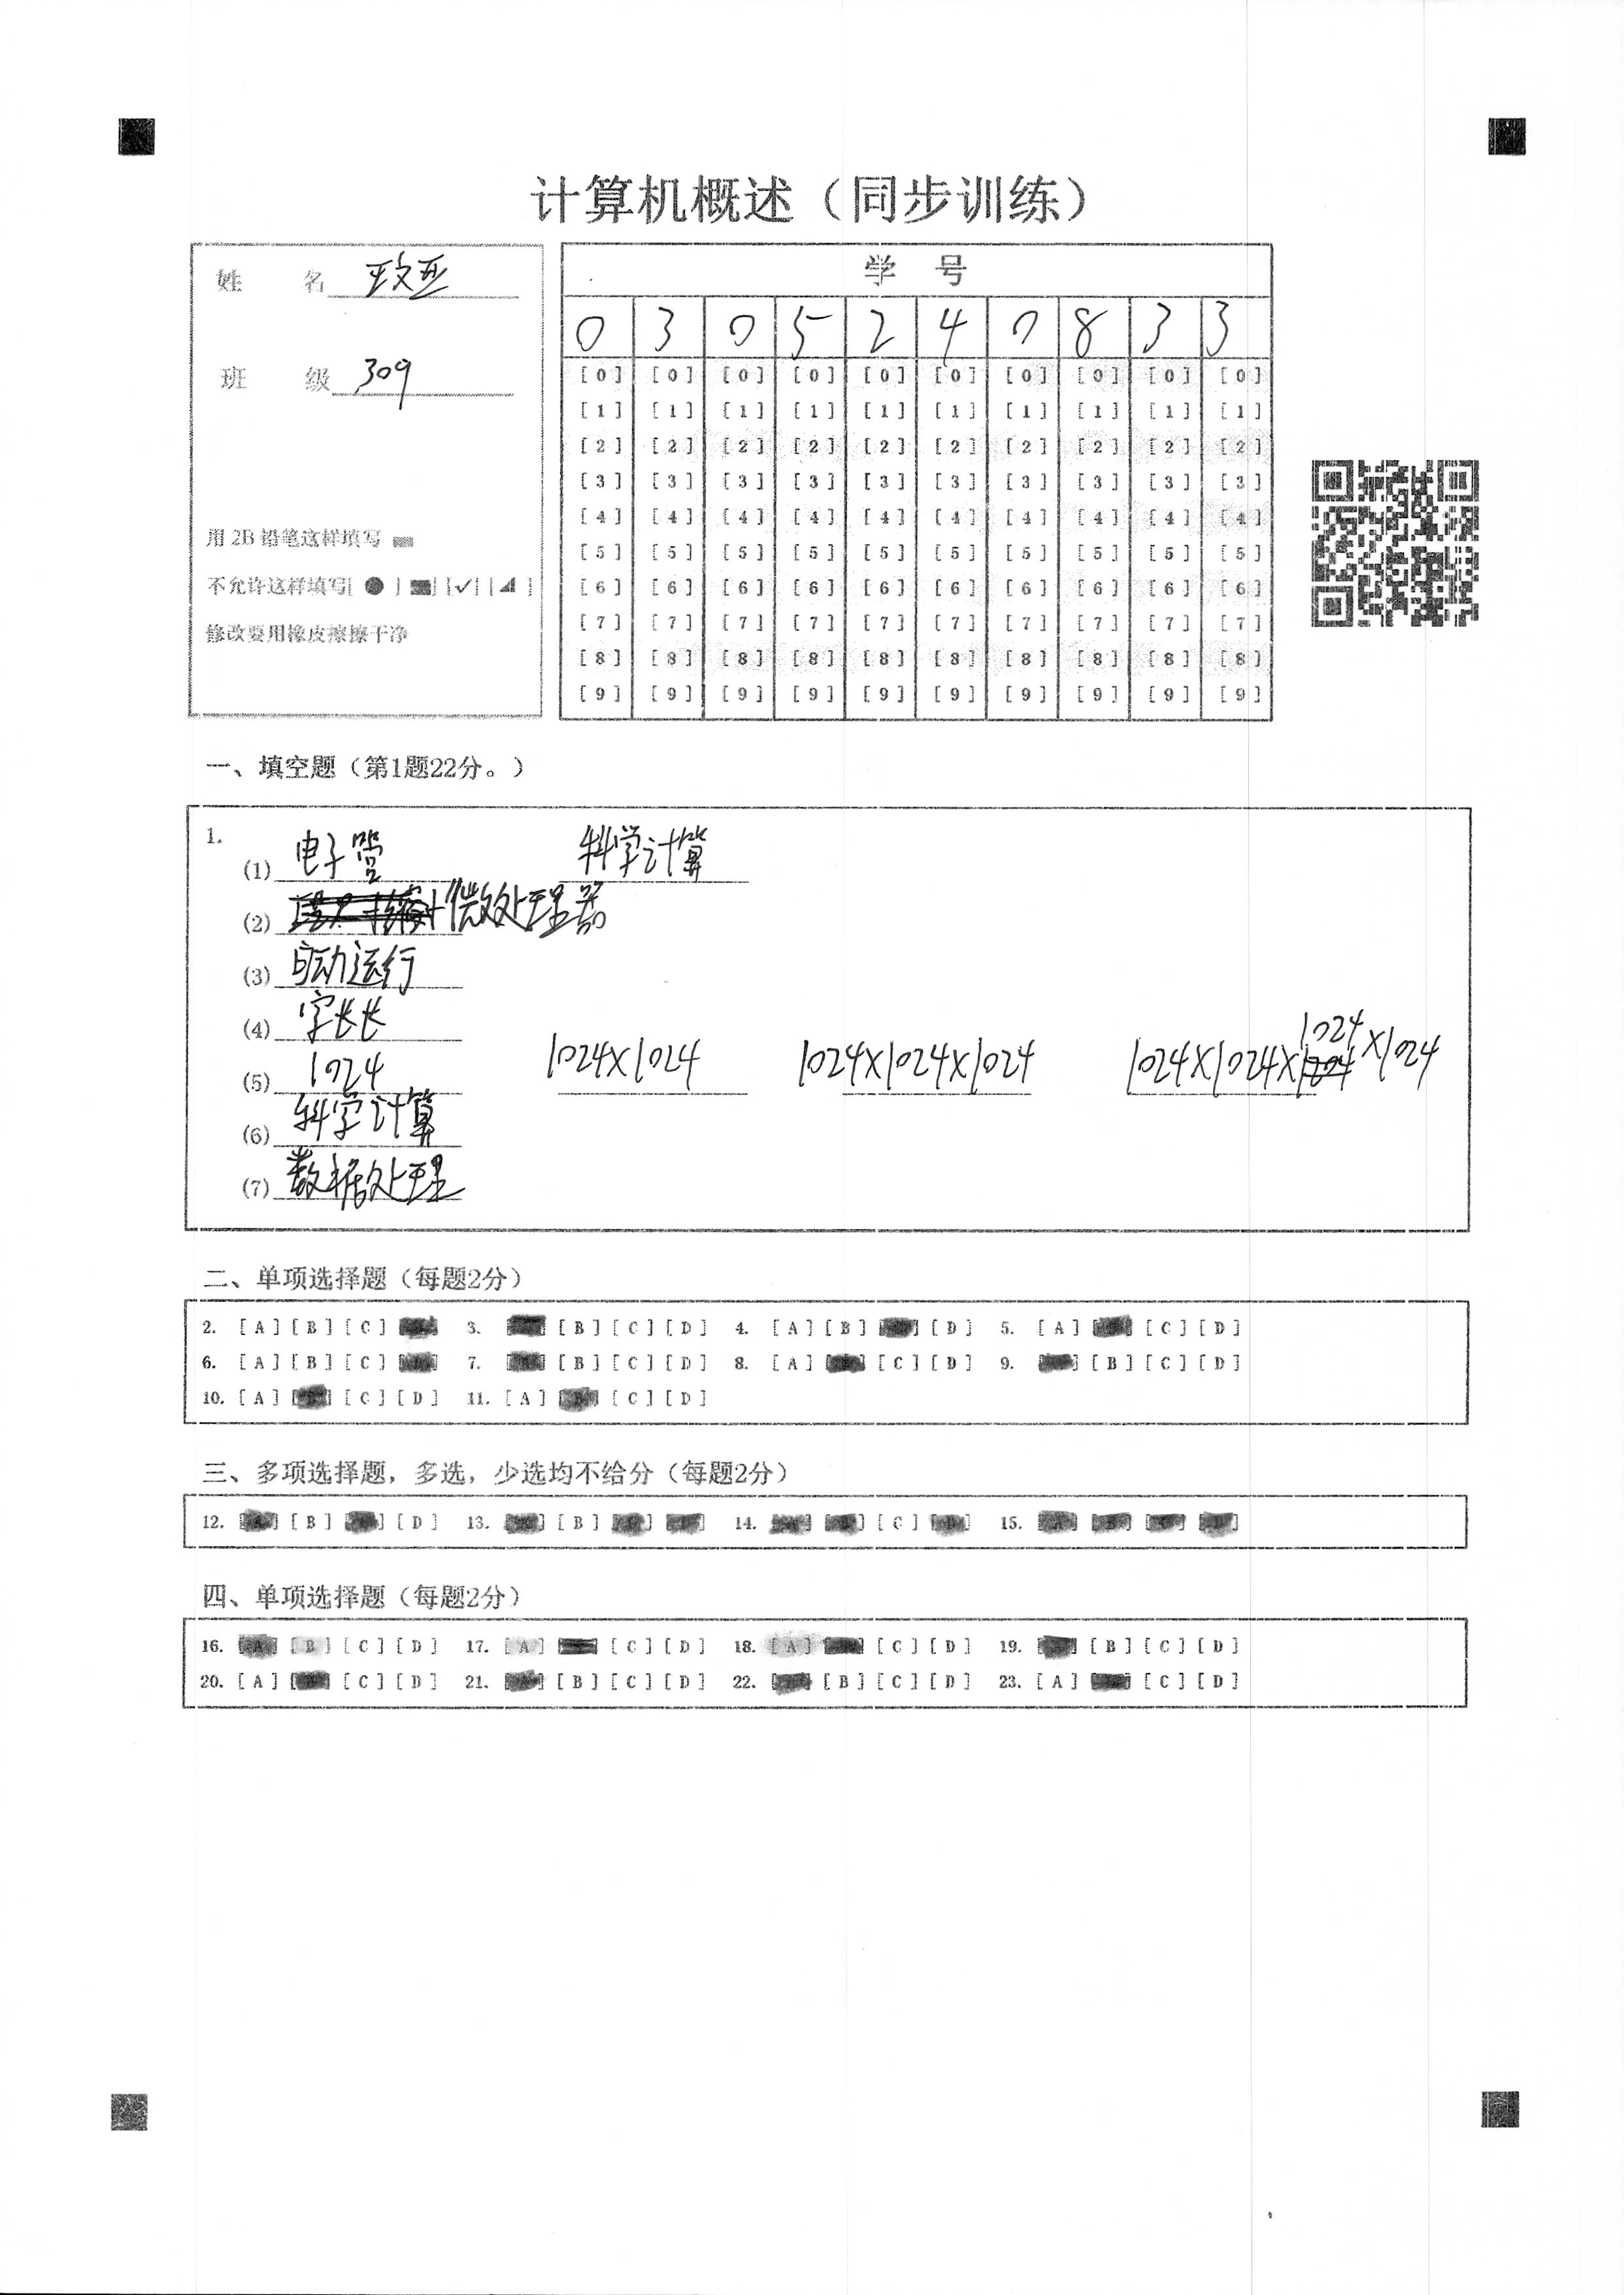 计算机概述（同步训练）
姓 名 王文亚
班 级 309
用 2B 铅笔这样填写
不允许这样填写[ ● ] [■] [✓] [◢ ]
修改要用橡皮擦擦干净
学 号
0 3 0 5 2 4 7 8 3 3
[0] [0] [0] [0] [0] [0] [0] [0] [0] [0]
[1] [1] [1] [1] [1] [1] [1] [1] [1] [1]
[2] [2] [2] [2] [2] [2] [2] [2] [2] [2]
[3] [3] [3] [3] [3] [3] [3] [3] [3] [3]
[4] [4] [4] [4] [4] [4] [4] [4] [4] [4]
[5] [5] [5] [5] [5] [5] [5] [5] [5] [5]
[6] [6] [6] [6] [6] [6] [6] [6] [6] [6]
[7] [7] [7] [7] [7] [7] [7] [7] [7] [7]
[8] [8] [8] [8] [8] [8] [8] [8] [8] [8]
[9] [9] [9] [9] [9] [9] [9] [9] [9] [9]
一、填空题（第1题22分。）
1.
(1) 电子管 科学计算
(2) 微处理器
(3) 自动运行
(4) 字长长
(5) 1024 1024×1024 1024×1024×1024 1024×1024×1024×1024
(6) 科学计算
(7) 数据处理
二、单项选择题（每题2分）
2. [A] [B] [C] 3. [B] [C] [D] 4. [A] [B] [D] 5. [A] [C] [D]
6. [A] [B] [C] 7. [B] [C] [D] 8. [A] [C] [D] 9. [B] [C] [D]
10. [A] [C] [D] 11. [A] [B] [C] [D]
三、多项选择题，多选，少选均不给分（每题2分）
12. [A] [B] [D] 13. [B] 14. [C] 15.
四、单项选择题（每题2分）
16. [A] [B] [C] [D] 17. [A] [C] [D] 18. [A] [C] [D] 19. [B] [C] [D]
20. [A] [C] [D] 21. [A] [B] [C] [D] 22. [B] [C] [D] 23. [A] [C] [D]